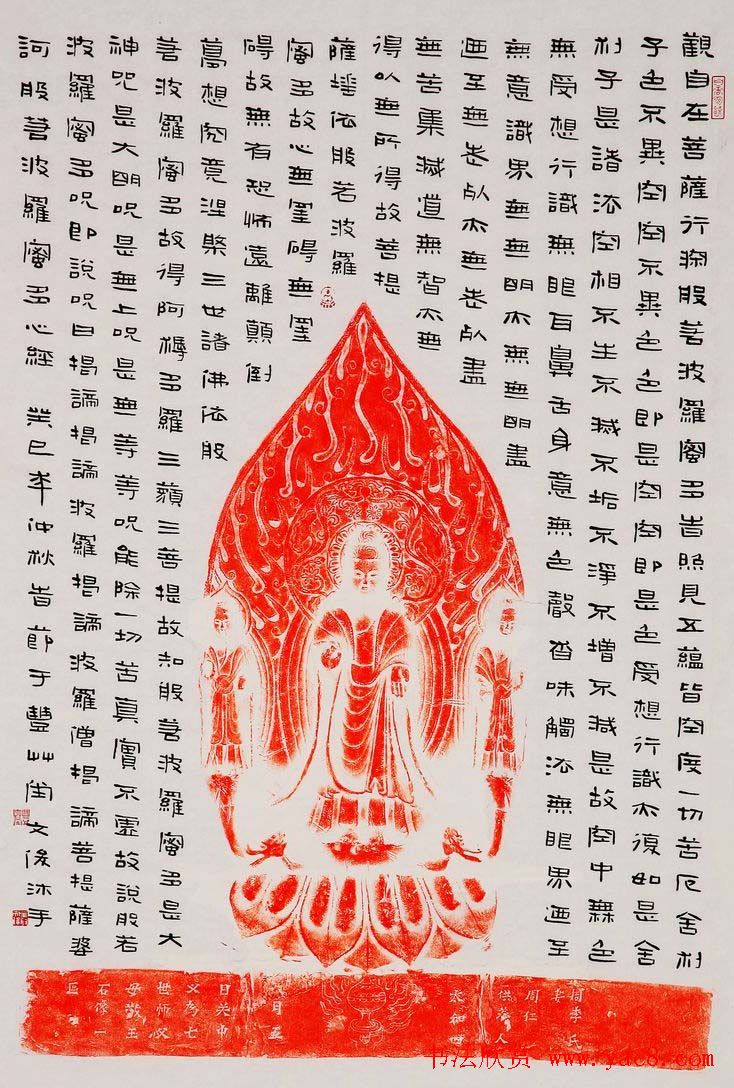 觀自在菩薩行深般若波羅蜜多旹照見五蘊皆空度一切苦厄舍利
子色不異空空不異色色即是空空即是色受想行識亦復如是舍
利子是諸法空相不生不滅不垢不淨不增不減是故空中無色
無受想行識無眼耳鼻舌身意無色聲香味觸法無眼界迺至
無意識界無無明亦無無明盡
迺至無老死亦無老死盡
無苦集滅道無智亦無
得以無所得故菩提
薩埵依般若波羅
蜜多故心無罣礙無罣
礙故無有恐怖遠離顛倒
夢想究竟涅槃三世諸佛依般
若波羅蜜多故得阿耨多羅三藐三菩提故知般若波羅蜜多是大
神咒是大明咒是無上咒是無等等咒能除一切苦真實不虛故說般若
波羅蜜多咒即說咒曰揭諦揭諦波羅揭諦波羅僧揭諦菩提薩婆
訶般若波羅蜜多心經 癸巳年仲秋旹節于豐草閣文俊沐手
周仁
供養人
月五
石像一
书法欣赏 www.yac8.com